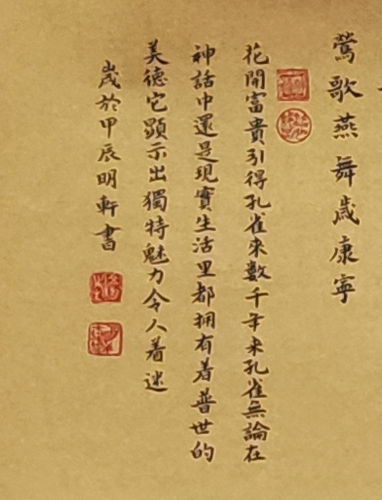 莺歌燕舞歲康寧
花開富貴引得孔雀來數千年来孔雀無論在
神話中還是現實生活里都拥有着普世的
美德它顯示出獨特魅力令人着迷
歲於甲辰明軒書